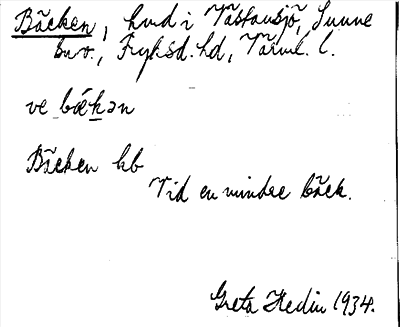 Bäcken, hmd i Västansjö, Sunne
sn o., Fryksd. hd, Värml. l.
ve bäkən
Bäcken hb
Vid en mindre bäck.
Greta Hedin 1934.